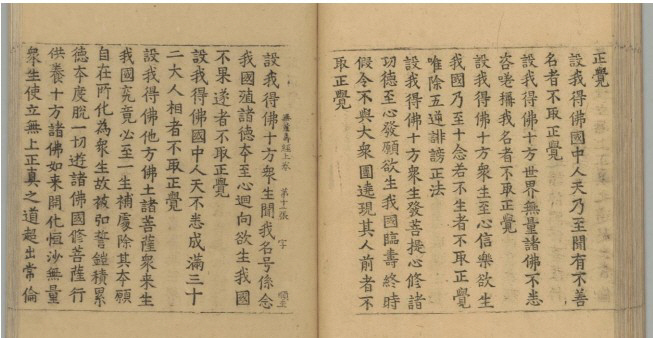 正覺
設我得佛國中人天乃至聞有不善
名者不取正覺
設我得佛十方世界無量諸佛不悉
咨嗟稱我名者不取正覺
設我得佛十方衆生至心信樂欲生
我國乃至十念若不生者不取正覺
唯除五逆誹謗正法
設我得佛十方衆生發菩提心修諸
功德至心發願欲生我國臨壽終時
假令不與大衆圍遶現其人前者不
取正覺
無量壽經上卷 第十張 字
設我得佛十方衆生聞我名号係念
我國殖諸德本至心迴向欲生我國
不果遂者不取正覺
設我得佛國中人天不悉成滿三十
二大人相者不取正覺
設我得佛他方佛土諸菩薩衆來生
我國究竟必至一生補處除其本願
自在所化為衆生故被弘誓鎧積累
德本度脫一切遊諸佛國修菩薩行
供養十方諸佛如來開化恒沙無量
衆生使立無上正真之道超出常倫